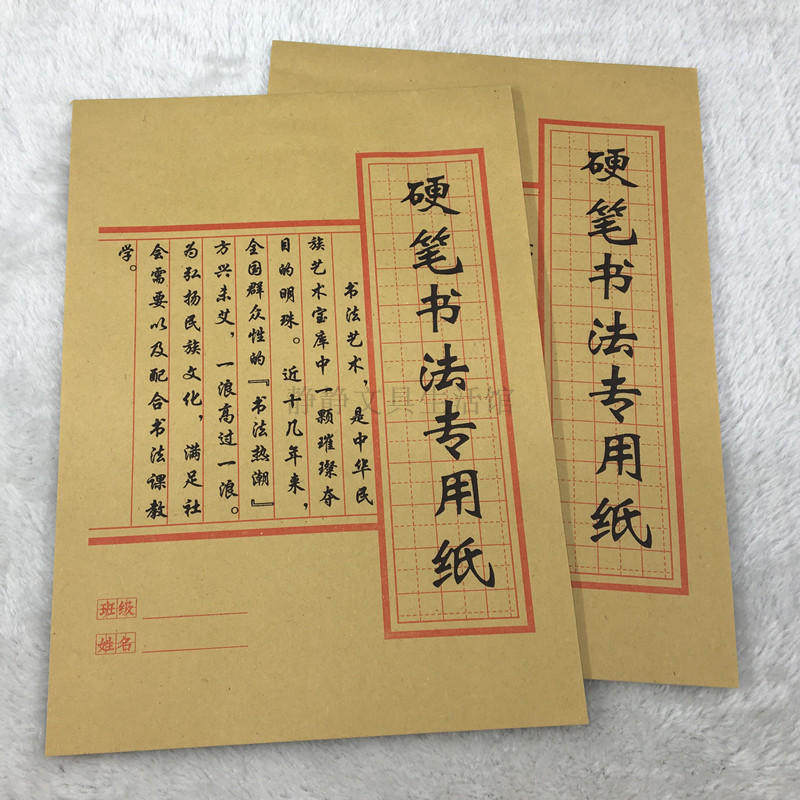 硬笔书法专用纸
书法艺术，是中华民
族艺术宝库中一颗璀璨夺
目的明珠。近十几年来，
全国群众性的『书法热潮』
方兴未艾，一浪高过一浪。
为弘扬民族文化，满足社
会需要以及配合书法课教
学。
班级
姓名
硬笔书法专用纸
静静文具生活馆